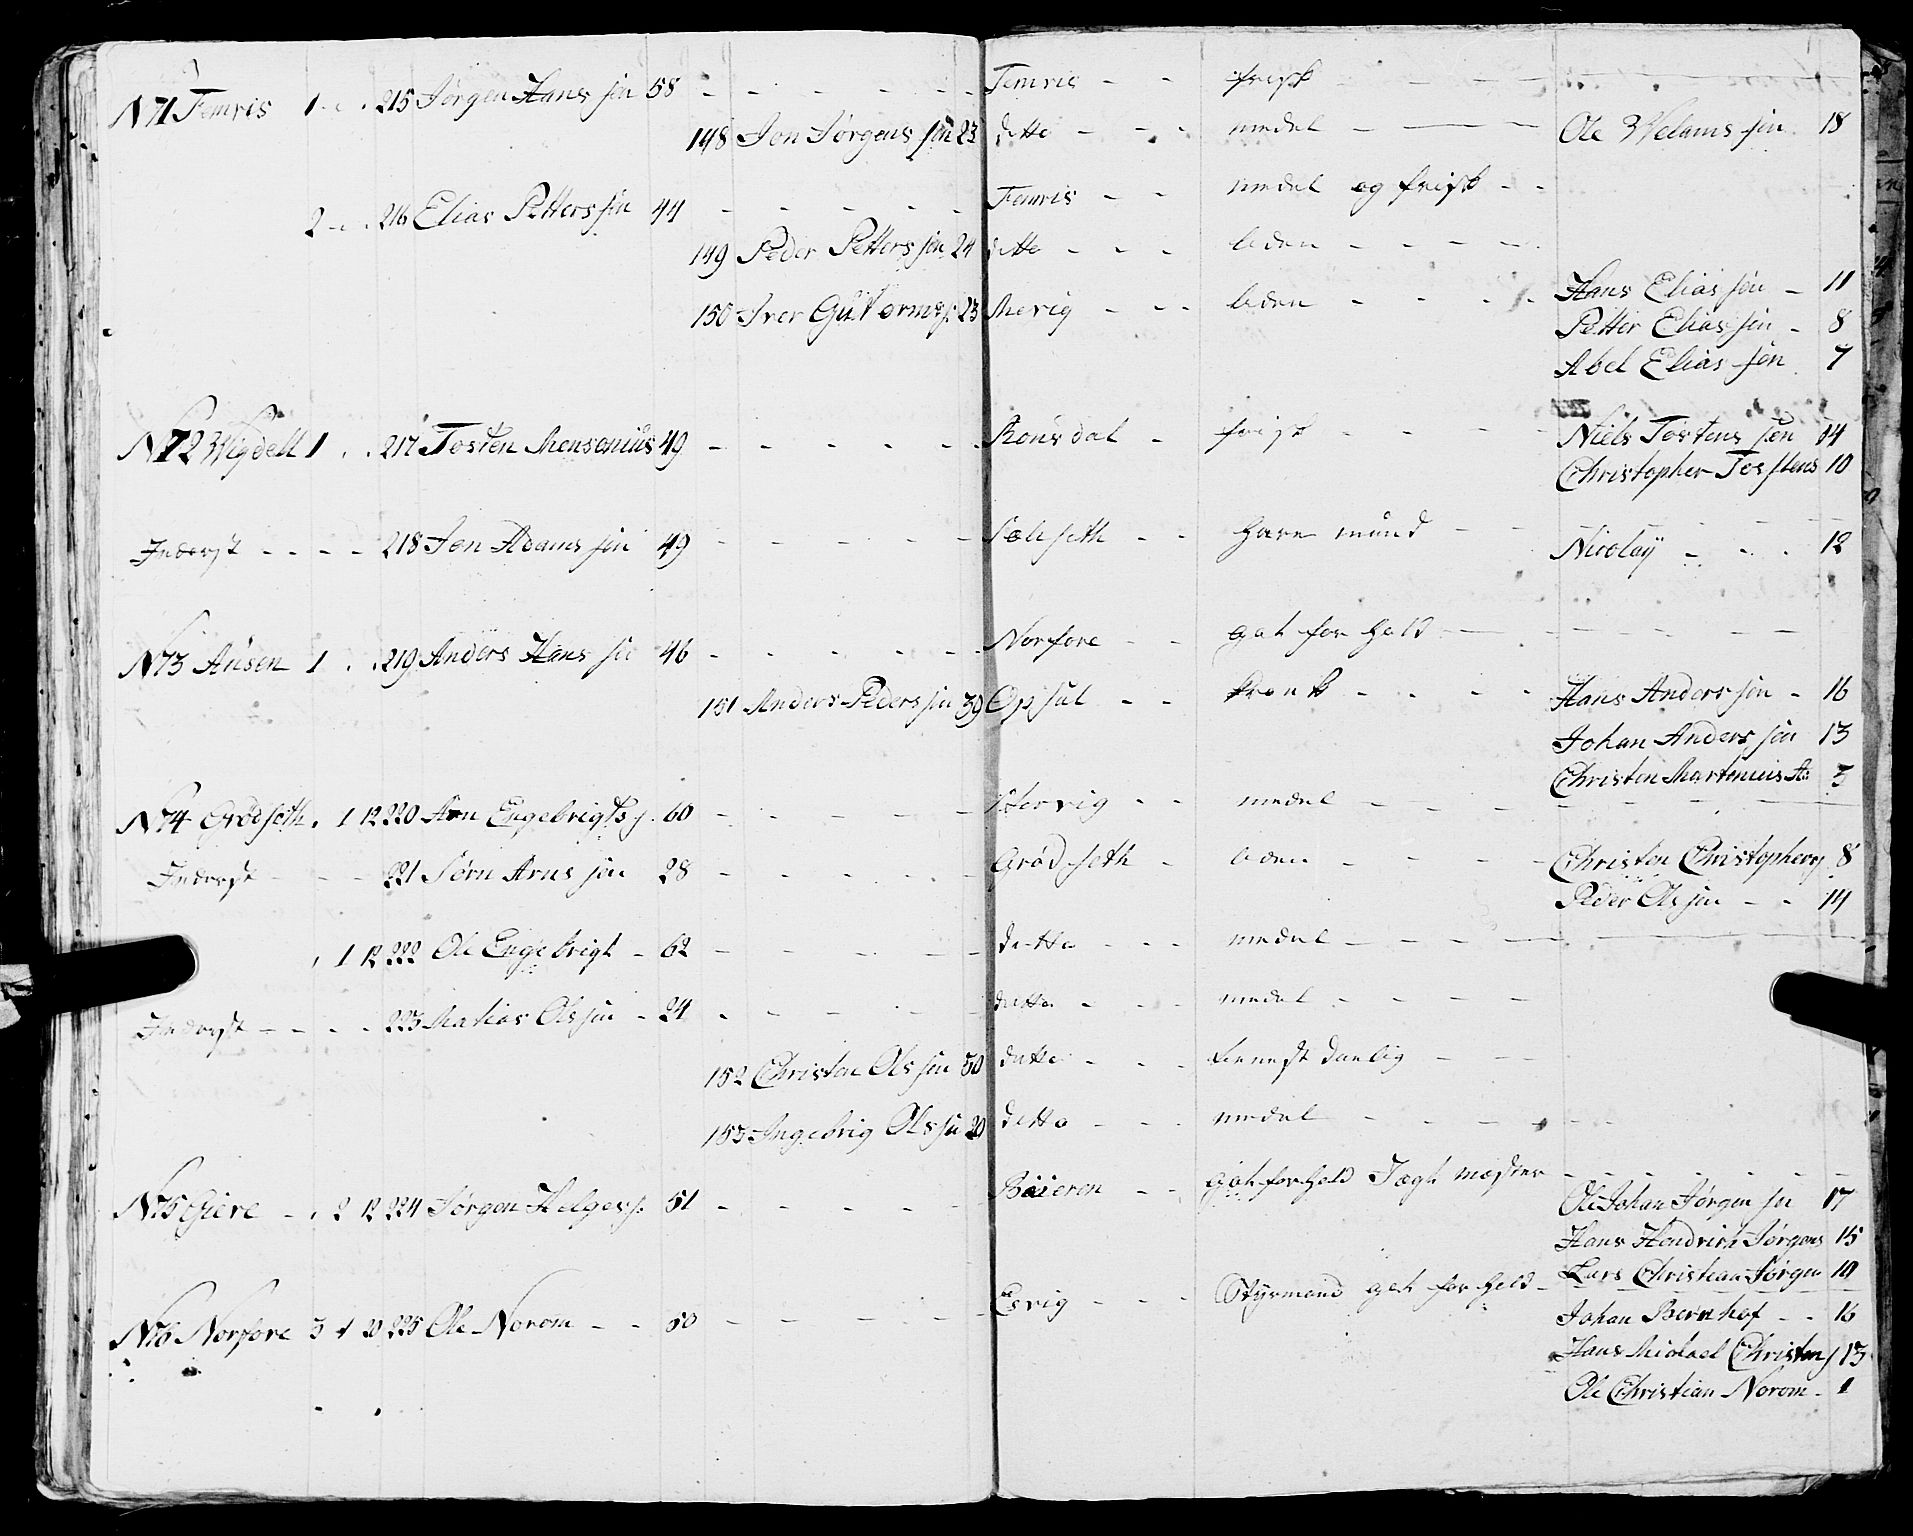 N 71 Femris 1 - . . 215 Jørgen Hans søn 58 - - - - - - Femris - - frisk - - - -
148 Jon Jørgens søn 23 ditto - - - medel - - - Ole Welams søn 18
2 - . . 216 Elias Petters søn 44 - - - - - Femris - - medel og frisk - -
149 Peder Petters søn 24 ditto - - - liden - - - -
150 Iver Guttorms s. 23 Mevig - - - liden - - - - Hans Elias søn - 11
Petter Elias søn - 8
Abel Elias søn 7
N 72 Wigdell 1 . . 217 Tosten Monsenius 49 - - - - - Ronsdal - frisk - - - Niels Tostens søn 14
Christopher Tostens 10
Inderst - - - - 218 Jon Adams søn 49 - - - - - - - harre mund - - Nicolaÿ - - - 12
N 73 Ausen 1 . . 219 Anders Hans sø 46 - - - - - Norfore - - got for hold - - - -
151 Andres Peders søn 39 Opsal - - krank - - - - Hans Anders søn - 16
Johan Anders søn 13
Christen Martenius A: 3
N 74 Grødseth . 1 12 220 Arn Engebrigts s. 60 - - - - - - - medel - - - -
Inderst - - - 221 Sørn Arns søn 28 - - - - - Grødseth - liden - - - - Christen Christophers 8
Peder Ols søn - - 14
. 1 12 222 Ole Engebrigt - 62 - - - - - ditto - - - medel - - - -
Inderst - - - - 223 Matias Ols søn - 24 - - - - - ditto - - - medel - - - -
152 Christen Ols søn 30 ditto - - - danlig - - -
153 Ingebrig Ols sø 20 ditto - - - medel - - - -
N 75 Giere - . 2 12 224 Jørgen Helges s. 51 - - - - - Beieren - - got forhold Jægt mester - - - -
Ole Johan Jørgen sø 17
Hans Hendrich Jørgens 15
Lars Christian Jørgen 10
N 76 Norfore 3 1 20 225 Ole Norom - - 50 - - - - - - Esvig - - - Styrmand got for hold -
Johan Bernhof - - 16
Hans Michael Christen s 13
Ole Christian Norom - 1